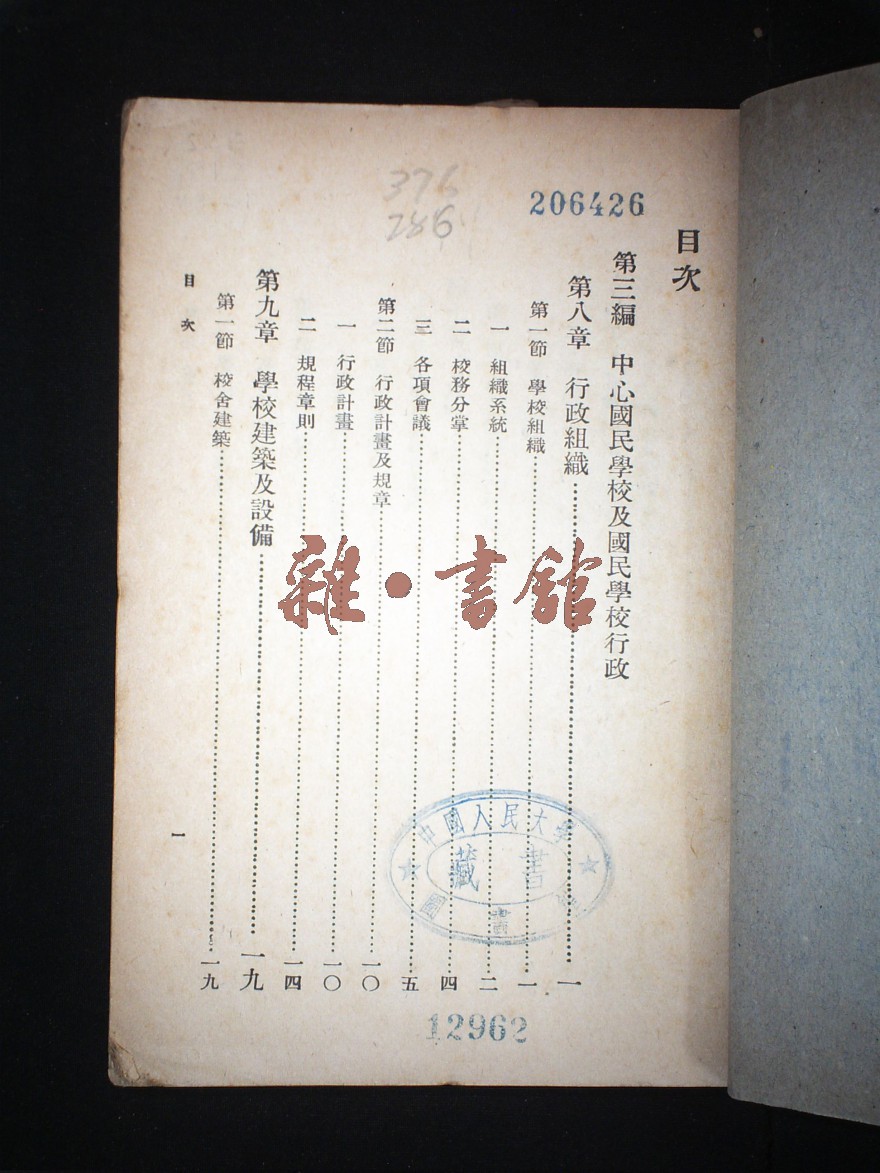 206426
376
286
目次
第三編　中心國民學校及國民學校行政
第八章　行政組織……一
第一節　學校組織……一
一　組織系統……二
二　校務分掌……四
三　各項會議……五
第二節　行政計畫及規章……一〇
一　行政計畫……一〇
二　規程章則……一四
第九章　學校建築及設備……一九
第一節　校舍建築……一九
目次
一
雜・書館
中國人民大學
藏書
圖書館
12962